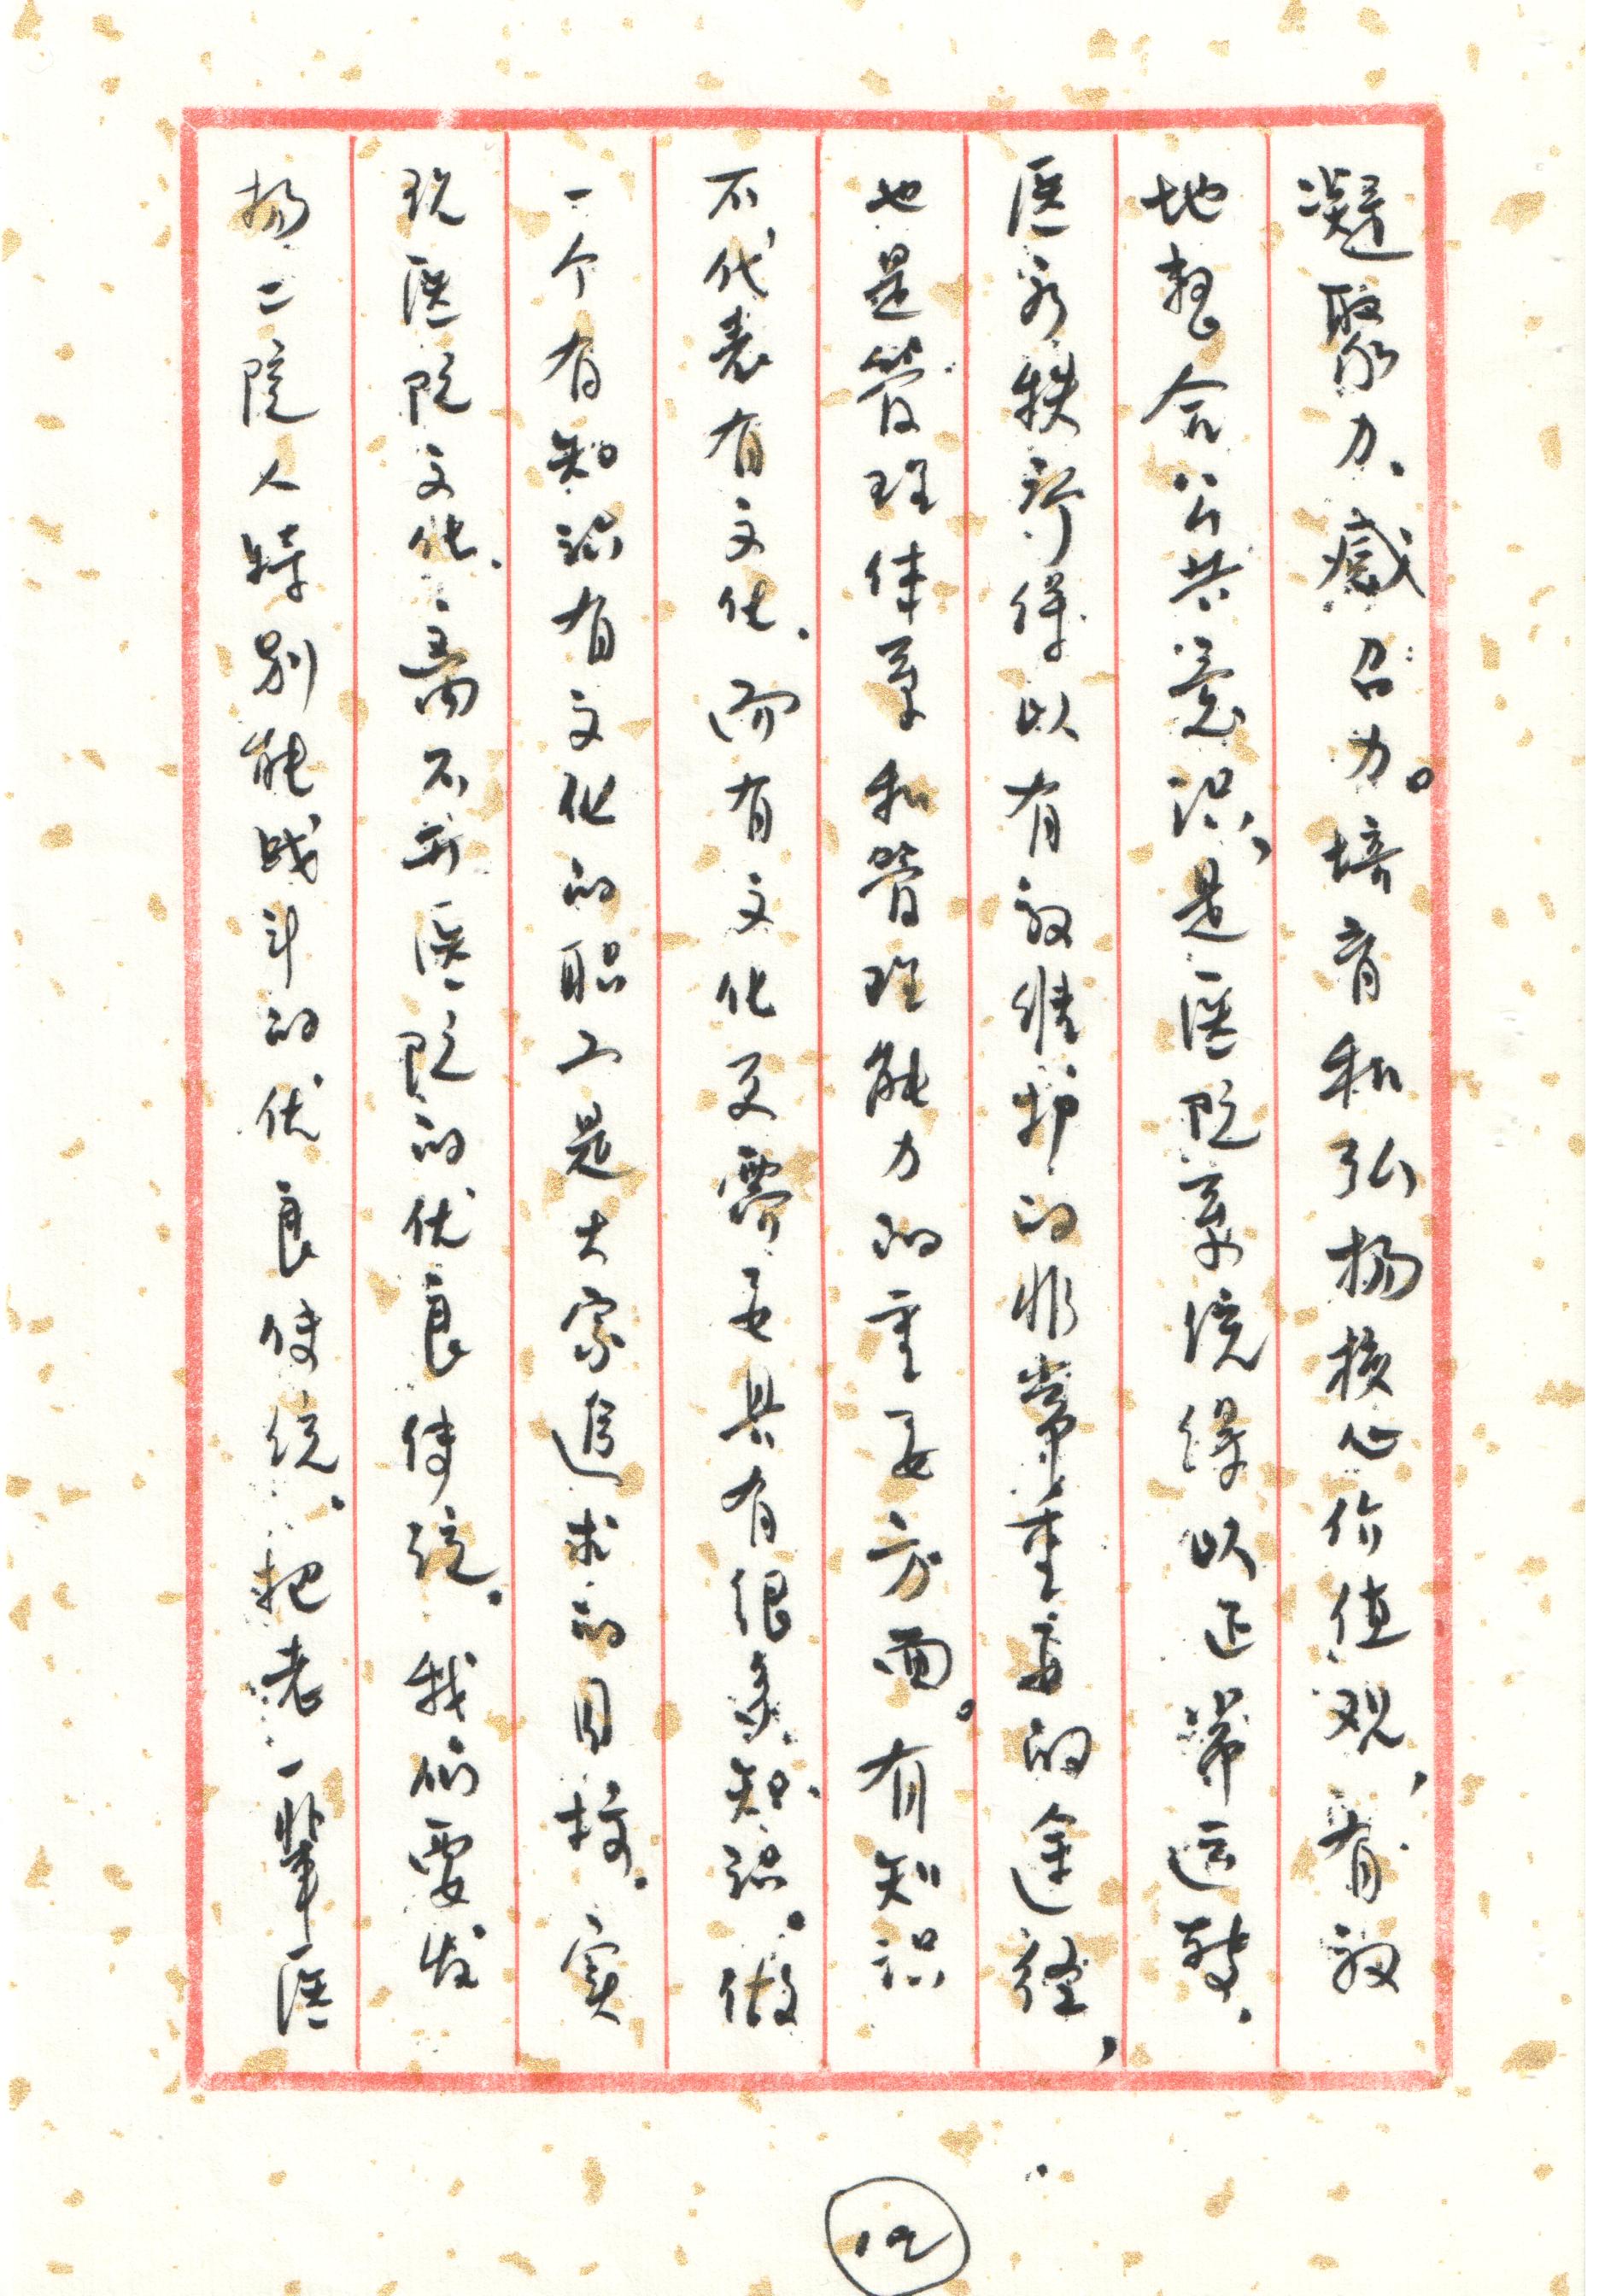 凝聚力、感召力。培育和弘扬核心价值观，有效
地整合公共意识，是医院系统得以正常运转、
医疗秩序得以有效维护的非常重要的途径，
也是管理体系和管理能力的重要方面。有知识
不代表有文化，而有文化更需要具有很多知识。做
一个有知识有文化的职工是大家追求的目标。实
现医院文化，需不开医院的优良传统。我们要发
扬二院人特别能战斗的优良传统，把老一辈医
12